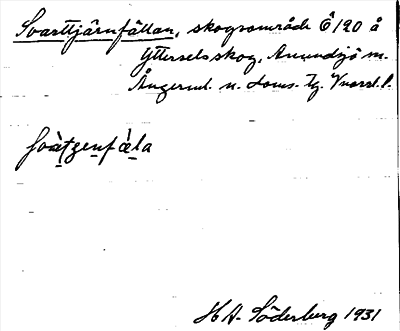 Svarttjärnfällan, skogsområde Ê 120 å
Ytterselsskog, Anundsjö sn.
Ångerml. n. doms. tg. Vnorrl. l.
svàţgenfä̀la
H.A. Söderberg 1931